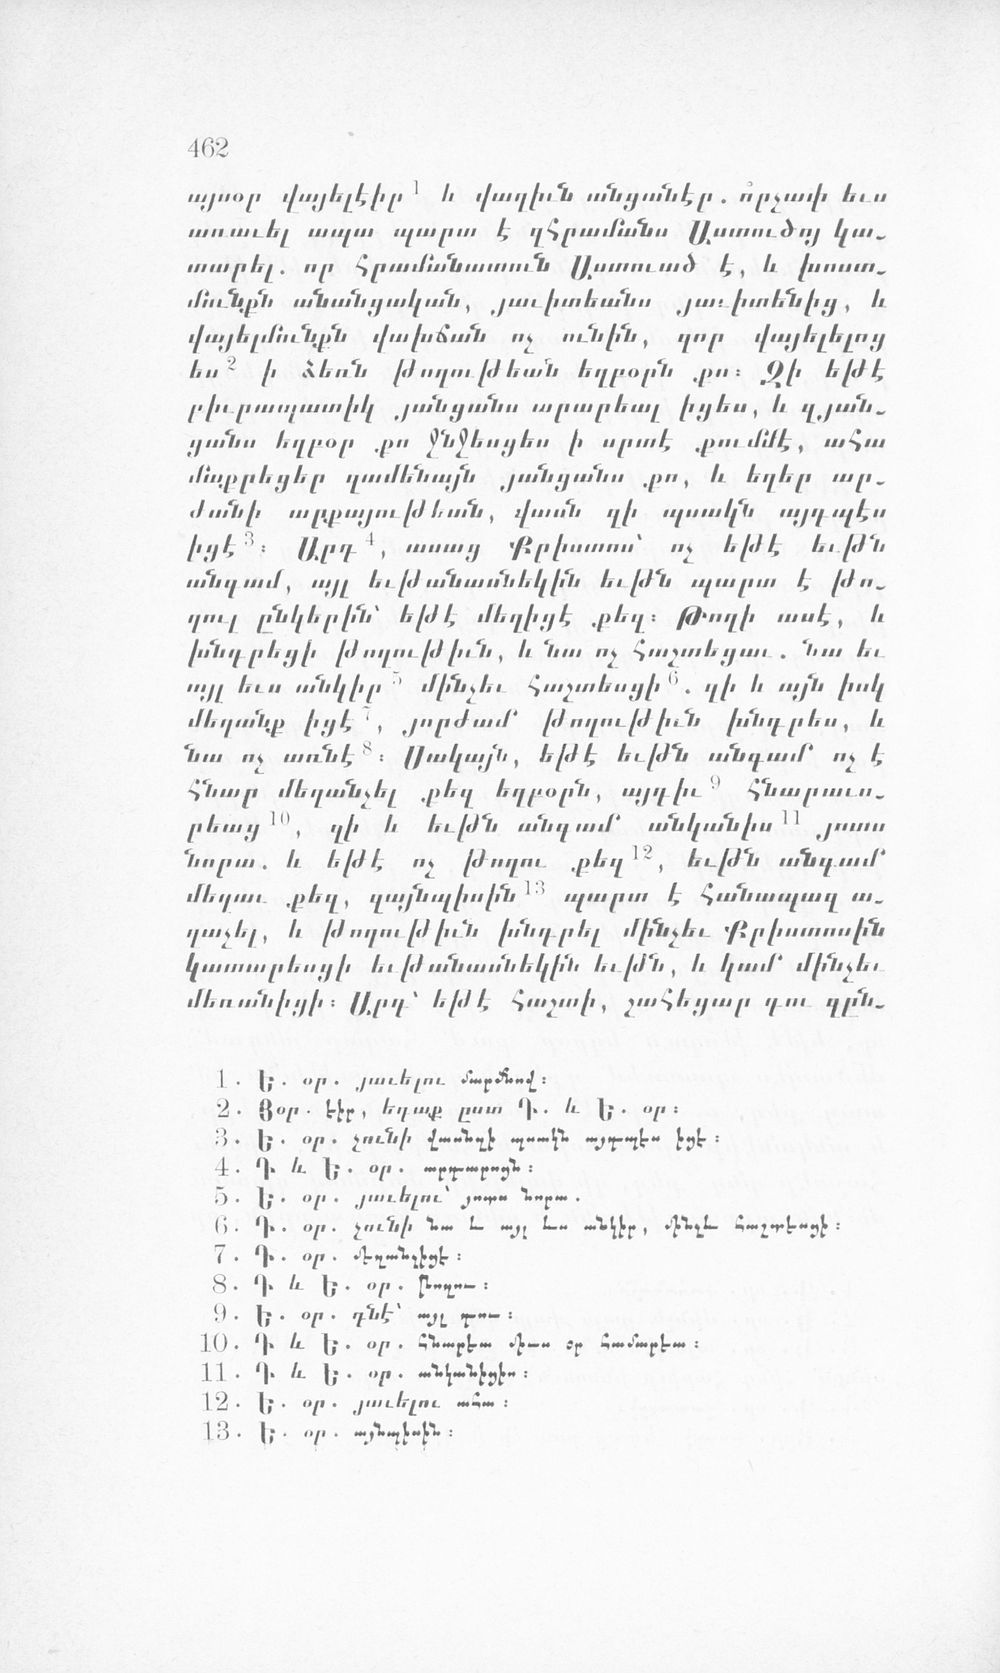 462
այսօր վայելէիր 1 և վաղիւն անցանէր. ո՛րչափ եւս
առաւել ապա պարտ է զՀրամանս Աստուծոյ կա-
տարել. որ Հրամանատուն Աստուած է, և խոստ-
մունքն անանցական, յաւիտեանս յաւիտենից, և
վայելմունքն վախճան ոչ ունին, զոր վայելելոց
ես 2 ի ձեռն թողութեան եղբօրն քո: Զի եթէ
բիւրապատիկ յանցանս արարեալ իցես, և զյան-
ցանս եղբօր քո ջնջեսցես ի սրտէ քումմէ, ահա
մաքրեցեր զամենայն յանցանս քո, և եղեր ար-
ժանի արքայութեան, վասն զի պսակն այդպէս
իցէ 3: Արդ 4, ասաց Քրիստոս՝ ոչ եթէ եւթն
անգամ, այլ եւթանասնեկին եւթն պարտ է թո-
ղուլ ընկերին՝ եթէ մեղիցէ քեզ: Թողի ասէ, և
խնդրեցի թողութիւն, և նա ոչ հաշտեցաւ. նա եւ
այլ եւս անկիր 5 մինչեւ հաշտեսցի 6. զի և այն իսկ
մեղանք իցէ 7, յորժամ թողութիւն խնդրես, և
նա ոչ առնէ 8: Սակայն, եթէ եւթն անգամ ոչ է
հնար մեղանչել քեզ եղբօրն, այդիւ 9 հնարաւո-
րեաց 10, զի և եւթն անգամ անկանիս 11 յոտս
նորա. և եթէ ոչ թողու քեզ 12, եւթն անգամ
մեղաւ քեզ, զայնպիսին 13 պարտ է հանապազ ա-
ղաչել, և թողութիւն խնդրել մինչեւ Քրիստոսին
կատարեսցի եւթանասնեկին եւթն, և կամ մինչեւ
մեռանիցի: Արդ՝ եթէ հաշտի, շահեցար դու զըն-
1. Ե. օր. յաւելու մարմնով:
2. Յօր. էիր, եդաք ըստ Դ. և Ե. օր:
3. Ե. օր. չունի վասնզի պսակն այդպէս իցէ:
4. Դ և Ե. օր. արդարոցն:
5. Ե. օր. յաւելու՝ յոտս նորա.
6. Դ. օր. չունի նա և այլ ևս անկիր, մինչև հաշտեսցի:
7. Դ. օր. մեղանչիցէ:
8. Դ և Ե. օր. թողու:
9. Ե. օր. դնէ՝ այլ դու:
10. Դ և Ե. օր. հնարեա միւս օր համարեա:
11. Դ և Ե. օր. անկանիցիս:
12. Ե. օր. յաւելու ահա:
13. Ե. օր. այնպիսին: